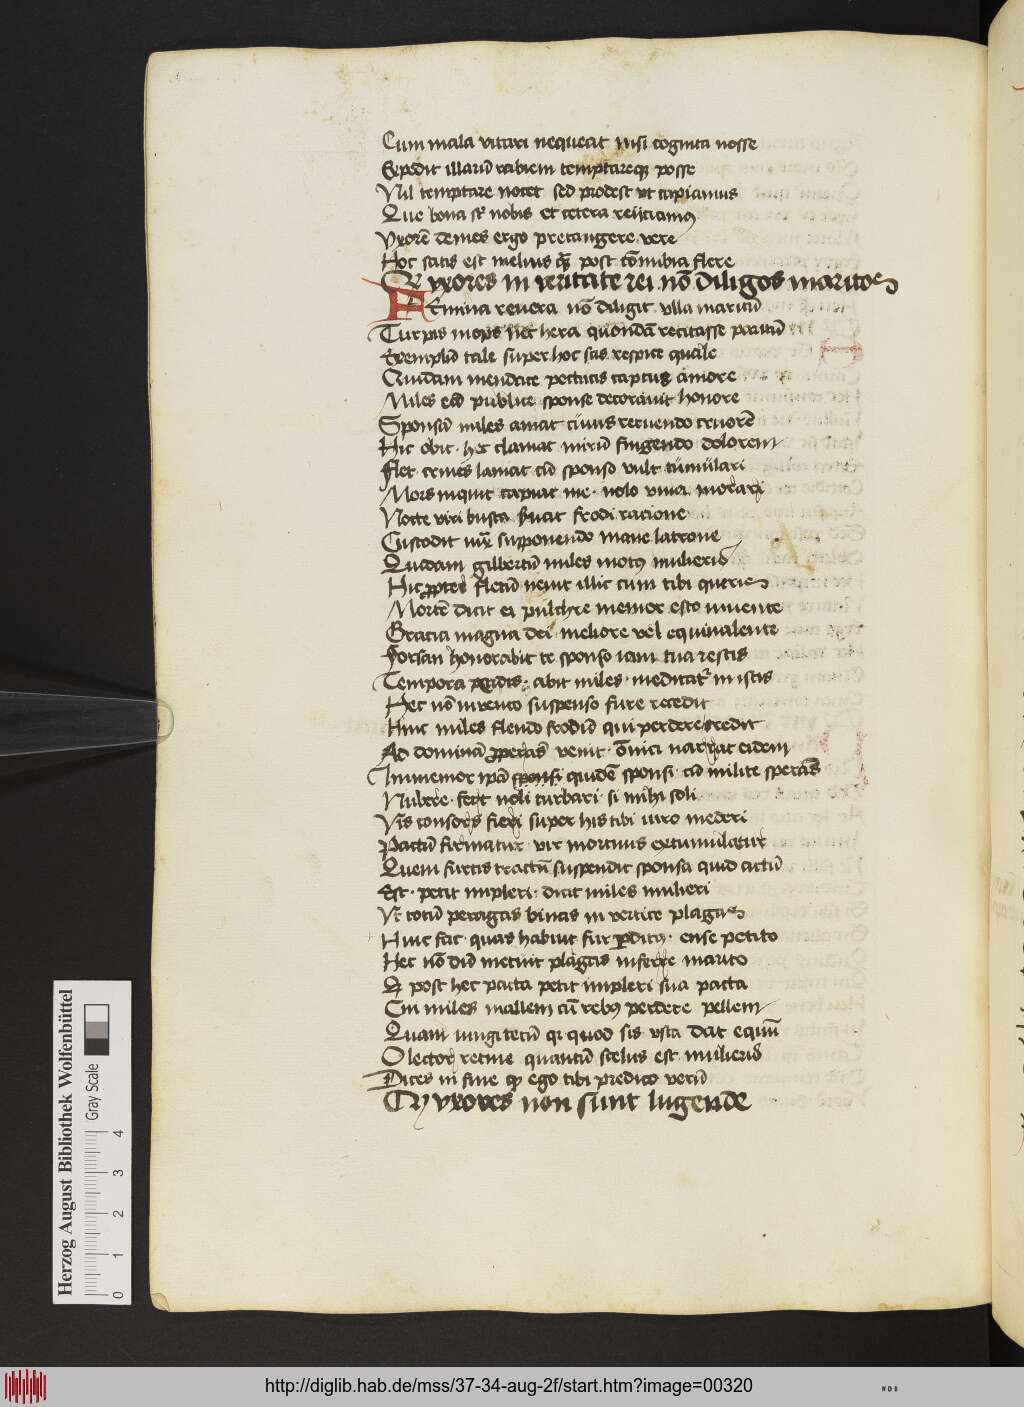 Cum mala vitari nequeat nisi cognita nosse
Expedit illarū rabiem temptareqꝫ posse
Nil temptare nocet sed prodest vt capiamus
Que bona sūt nobis et cetera reijciamꝰ
Vxorē demes ergo pretangere vere
Hoc satis est melius qᷓꝫ post conubia flere
Qꝛ vxores in veritate rei nō diligūt maritos
FEmina reuera nō diligit vlla maritū
Turpis inops nec hera quondā recitasse peritū
Exemplū tale super hoc scis respice quale
Quidam mendace pectoris captus amore
Miles eā publice sponse decorauit honore
Sponsā miles amat cuius cernendo cruorē
Hic obit · hec clamat mirū fingendo dolorem
Flet · crines laniat cū sponso vult tumulari
Mors inquit capiat me · nolo viua morari
Nocte viri busta fuerat frodi racione
Custodit mꝫ supponendo mane latrone
Quedam gilbertū miles motꝰ mulieris
Hic ꝓpter fletū venit illic cum tibi queris
Mortē dicit ei pulchre memor esto viuente
Gracia magna dei meliore vel equiualente
Forsan honorabit te sponso iam tua restis
Tempora perdis · abit miles · meditatʳ in istis
Hec nō invento suspenso fure recedit
Hinc miles flendo frodiū qui perdere credit
Ad dominā ꝓperās venit · omnia narrat eidem
Immemor ipā sponsi quidē sponsi · cū milite sperās
Nubere · fert noli turbari · si mihi soli
Vis consors fieri super his tibi iuro mederi
Pactū firmatur · vir mortuus extumulatur
Quem furcis tractū suspendit sponsa quid actū
Est · petit impleri · dicit miles mulieri
Vt totū peragas binas in vertice plagas
Hinc fac · quas habuit fur ꝑditꝰ · ense petito
Hec nō diū metuit plagas inferre marito
Et post hec pacta petit impleri sua pacta
Cui miles mallem cū rebꝰ perdere pellem
Quam iungi tecū qꝛ quod sis vsta dat equū
O lector retine quantū scelus est mulieris
Dices in fine qꝫ ego tibi predico verū
Qꝫ vxores non sunt lugende
Herzog August Bibliothek Wolfenbüttel
Gray Scale
0 1 2 3 4
http://diglib.hab.de/mss/37-34-aug-2f/start.htm?image=00320